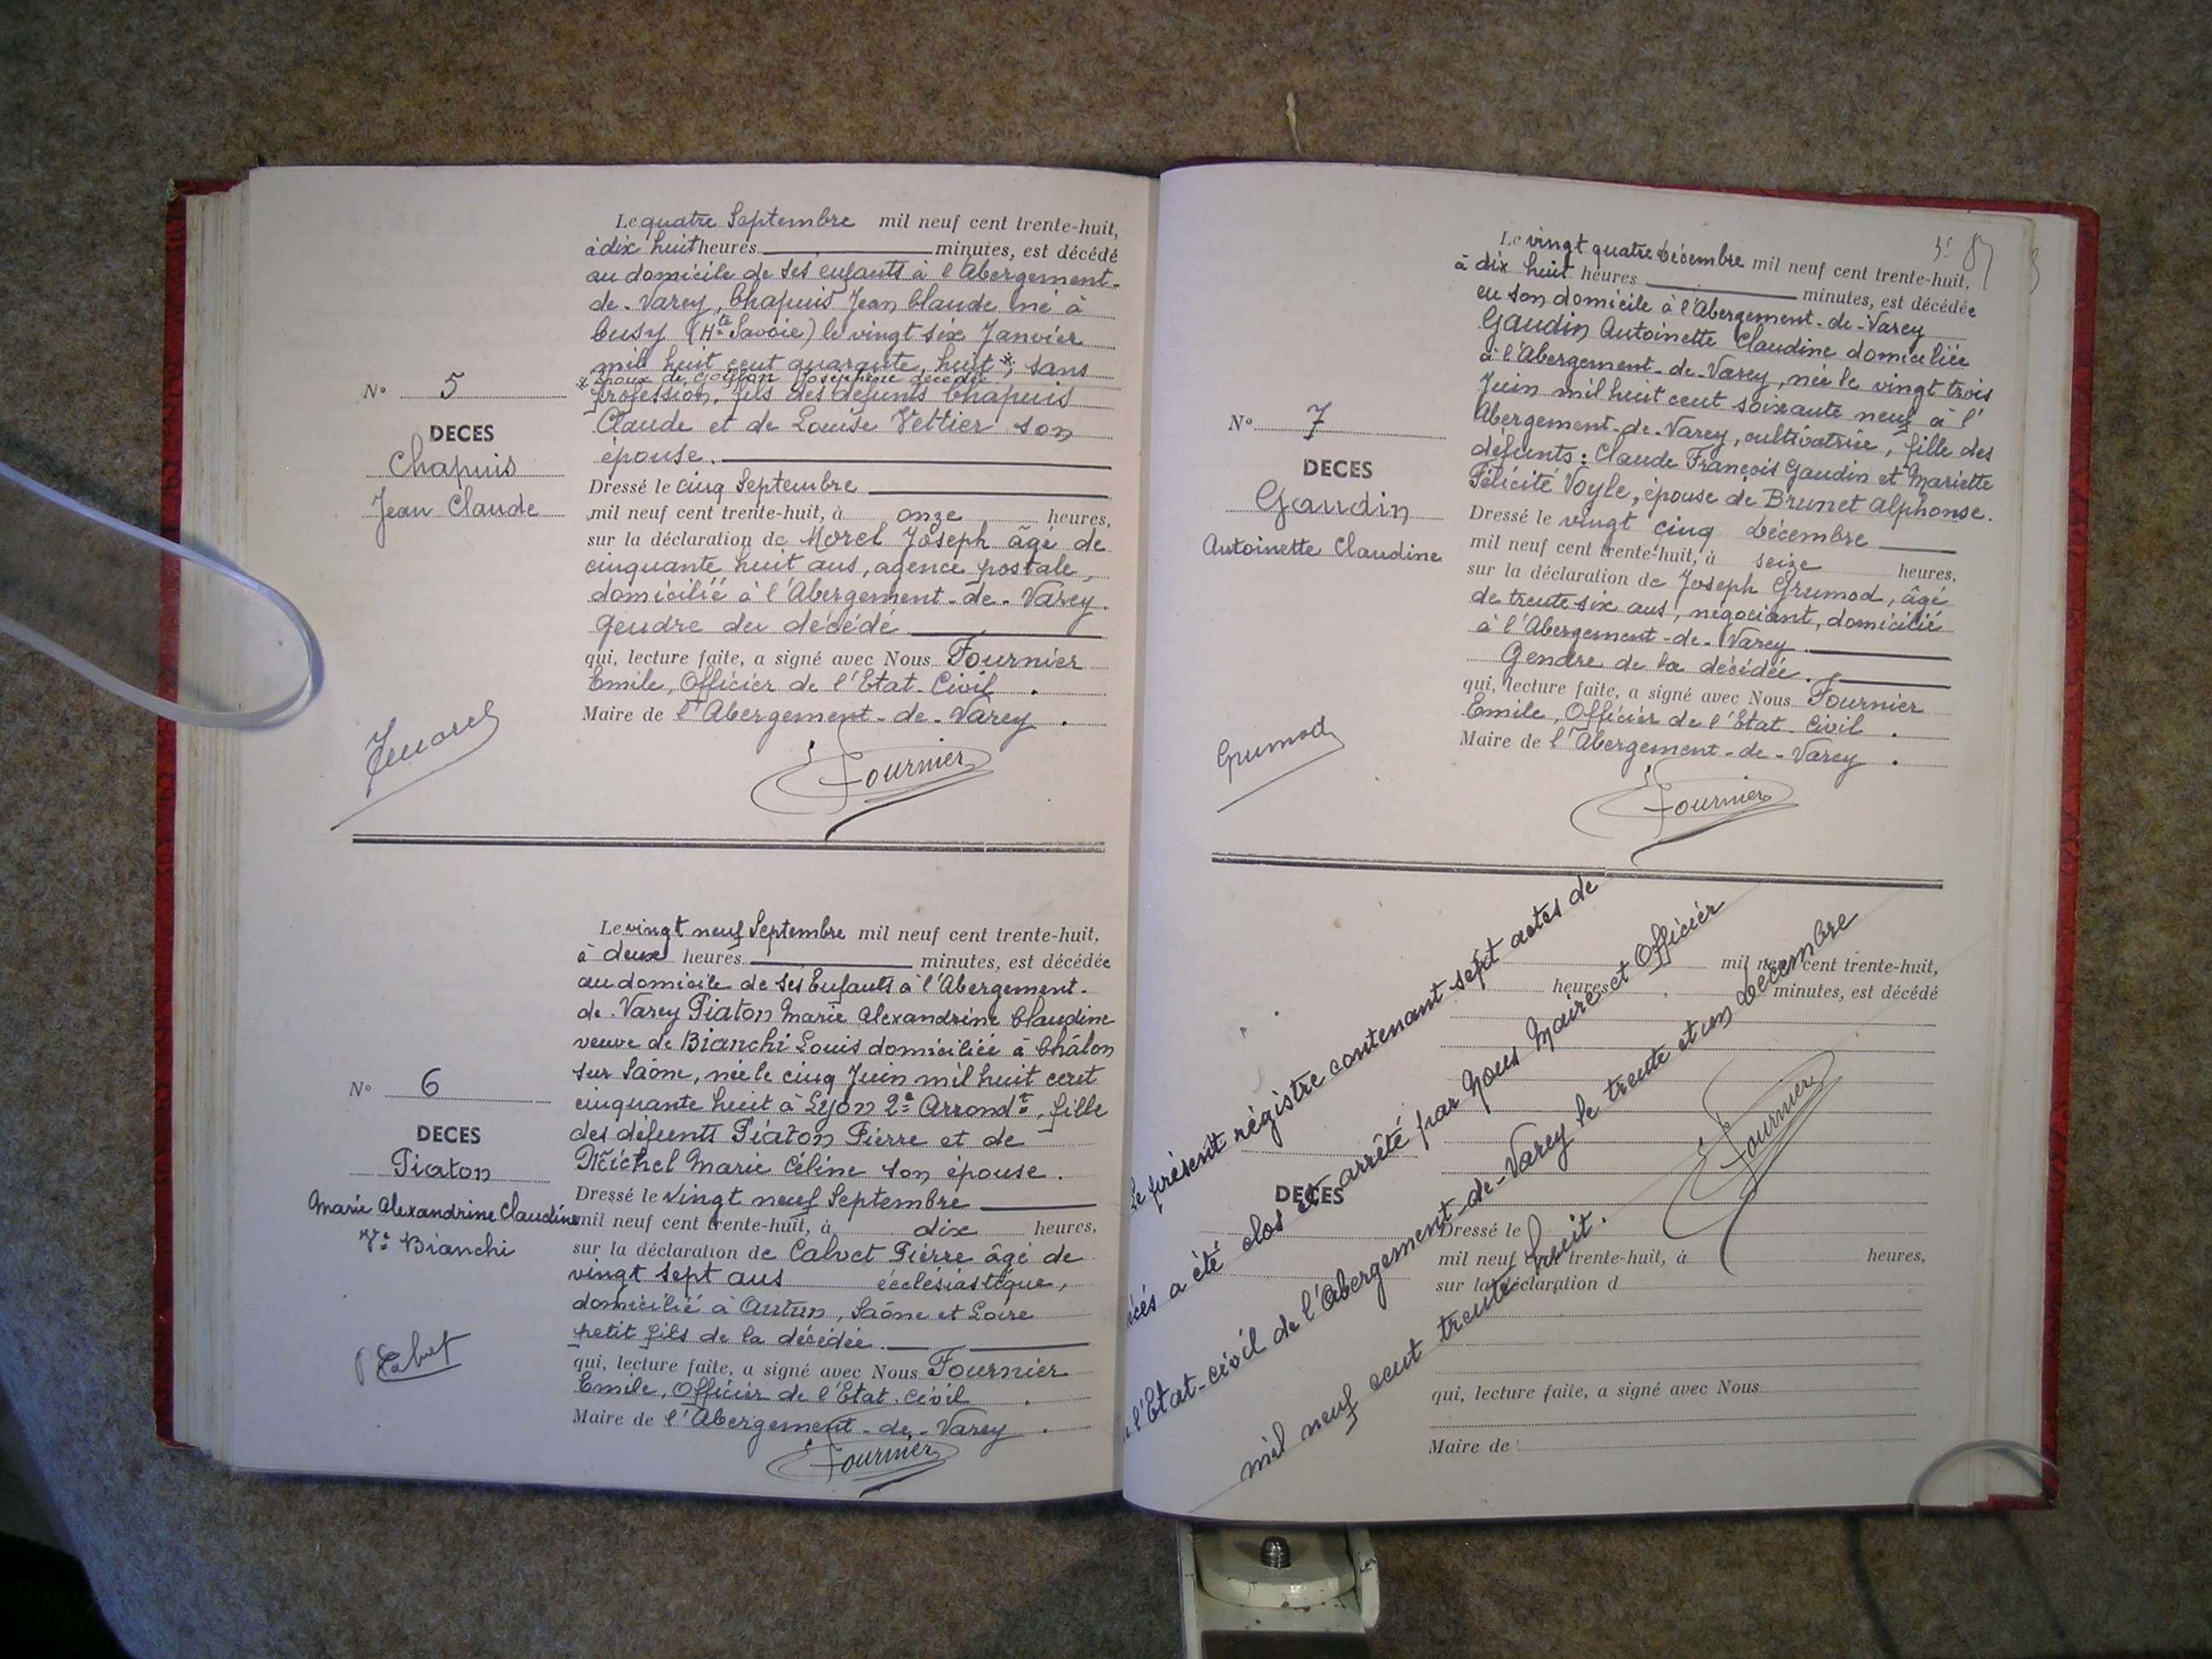 Le quatre Septembre mil neuf cent trente-huit,
à dix huit heures minutes, est décédé
au domicile de ses enfants à l'Abergement-
de-Varey, Chapuis Jean Claude né à
Cusy (Hte Savoie) le vingt six Janvier
mil huit cent quarante huit *, sans
* époux de Josephine décédée
profession, fils des défunts Chapuis
Claude et de Louise Vettier son
épouse.
N° 5
DECES
Chapuis
Jean Claude
Dressé le cinq Septembre
mil neuf cent trente-huit, à onze heures,
sur la déclaration de Morel Joseph âgé de
cinquante huit ans, agence postale,
domicilié à l'Abergement-de-Varey.
gendre du décédé
qui, lecture faite, a signé avec Nous Fournier
Emile, Officier de l'Etat-Civil.
Maire de l'Abergement-de-Varey.
Fournier
Le vingt neuf Septembre mil neuf cent trente-huit,
à deux heures minutes, est décédée
au domicile de ses Enfants à l'Abergement-
de-Varey Piaton Marie Alexandrine Claudine
veuve de Bianchi Louis domiciliée à Châlon
sur Saône, née le cinq Juin mil huit cent
cinquante huit à Lyon 2e Arrondt, fille
des défunts Piaton Pierre et de
Michel Marie Céline son épouse.
N° 6
DECES
Piaton
Marie Alexandrine Claudine
Ve Bianchi
Dressé le Vingt neuf Septembre
mil neuf cent trente-huit, à dix heures,
sur la déclaration de Calvet Pierre âgé de
vingt sept ans écclésiastique,
domicilié à Autun, Saône et Loire
petit fils de la décédée.
qui, lecture faite, a signé avec Nous Fournier
Emile, Officier de l'Etat-Civil.
Maire de l'Abergement-de-Varey.
P Calvet
Fournier
Le vingt quatre Décembre mil neuf cent trente-huit,
à dix huit heures minutes, est décédée
en son domicile à l'Abergement-de-Varey
Gaudin Antoinette Claudine domiciliée
à l'Abergement-de-Varey, née le vingt trois
Juin mil huit cent soixante neuf à l'
Abergement-de-Varey, cultivatrice, fille des
défunts: Claude François Gaudin et Mariette
Félicité Voyle, épouse de Brunet Alphonse.
N° 7
DECES
Gaudin
Antoinette Claudine
Dressé le vingt cinq Décembre
mil neuf cent trente-huit, à seize heures,
sur la déclaration de Joseph Grumod, âgé
de trente six ans, négociant, domicilié
à l'Abergement-de-Varey.
Gendre de la décédée.
qui, lecture faite, a signé avec Nous Fournier
Emile, Officier de l'Etat-Civil.
Maire de l'Abergement-de-Varey.
Grumod
Fournier
Le présent régistre contenant sept actes de
décés a été clos et arrêté par Nous Maire et Officier
de l'Etat-civil de l'Abergement-de-Varey le trente et un Décembre
mil neuf cent trente huit.
Fournier
mil neuf cent trente-huit,
heures, minutes, est décédé
DECES
Dressé le
mil neuf cent trente-huit, à heures,
sur la déclaration d
qui, lecture faite, a signé avec Nous
Maire de